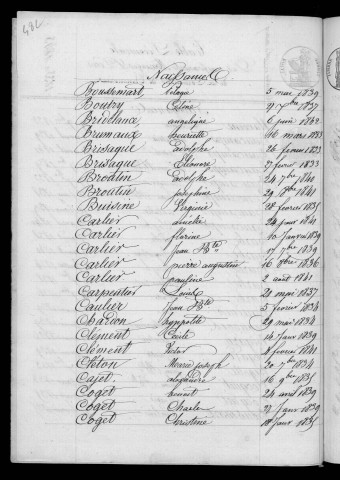 482
Naissances
Boussemart pélagie 5 mai 1839
Boutry Céline 9 7bre 1837
Bridelance angélique 6 juin 1842
Brumaux henriette 16 mars 1833
Brisaque adolphe 26 février 1833
Brisaque Eléonore 27 février 1833
Brodlin adolphe 24 7bre 1840
Broutin joséphine 29 9bre 1841
Buisine Virginie 28 février 1835
Carlier aimée 24 janv 1841
Carlier florine 10 janvier 1839
Carlier Jean Bte 17 7bre 1839
Carlier pierre augustin 16 8bre 1836
Carlier pauline 2 août 1841
Carpentier Louis 20 mai 1837
Caulier Jean Bte 5 février 1834
Charlon hyppolite 29 mai 1834
Clément Cécile 14 janv 1839
Clément Victor 1 février 1841
Cléton Marie joseph 20 7bre 1834
Cojet alexandre 16 9bre 1835
Coget benoit 24 avril 1839
Coget Charles 27 janv 1839
Coget Christine 18 janv 1835